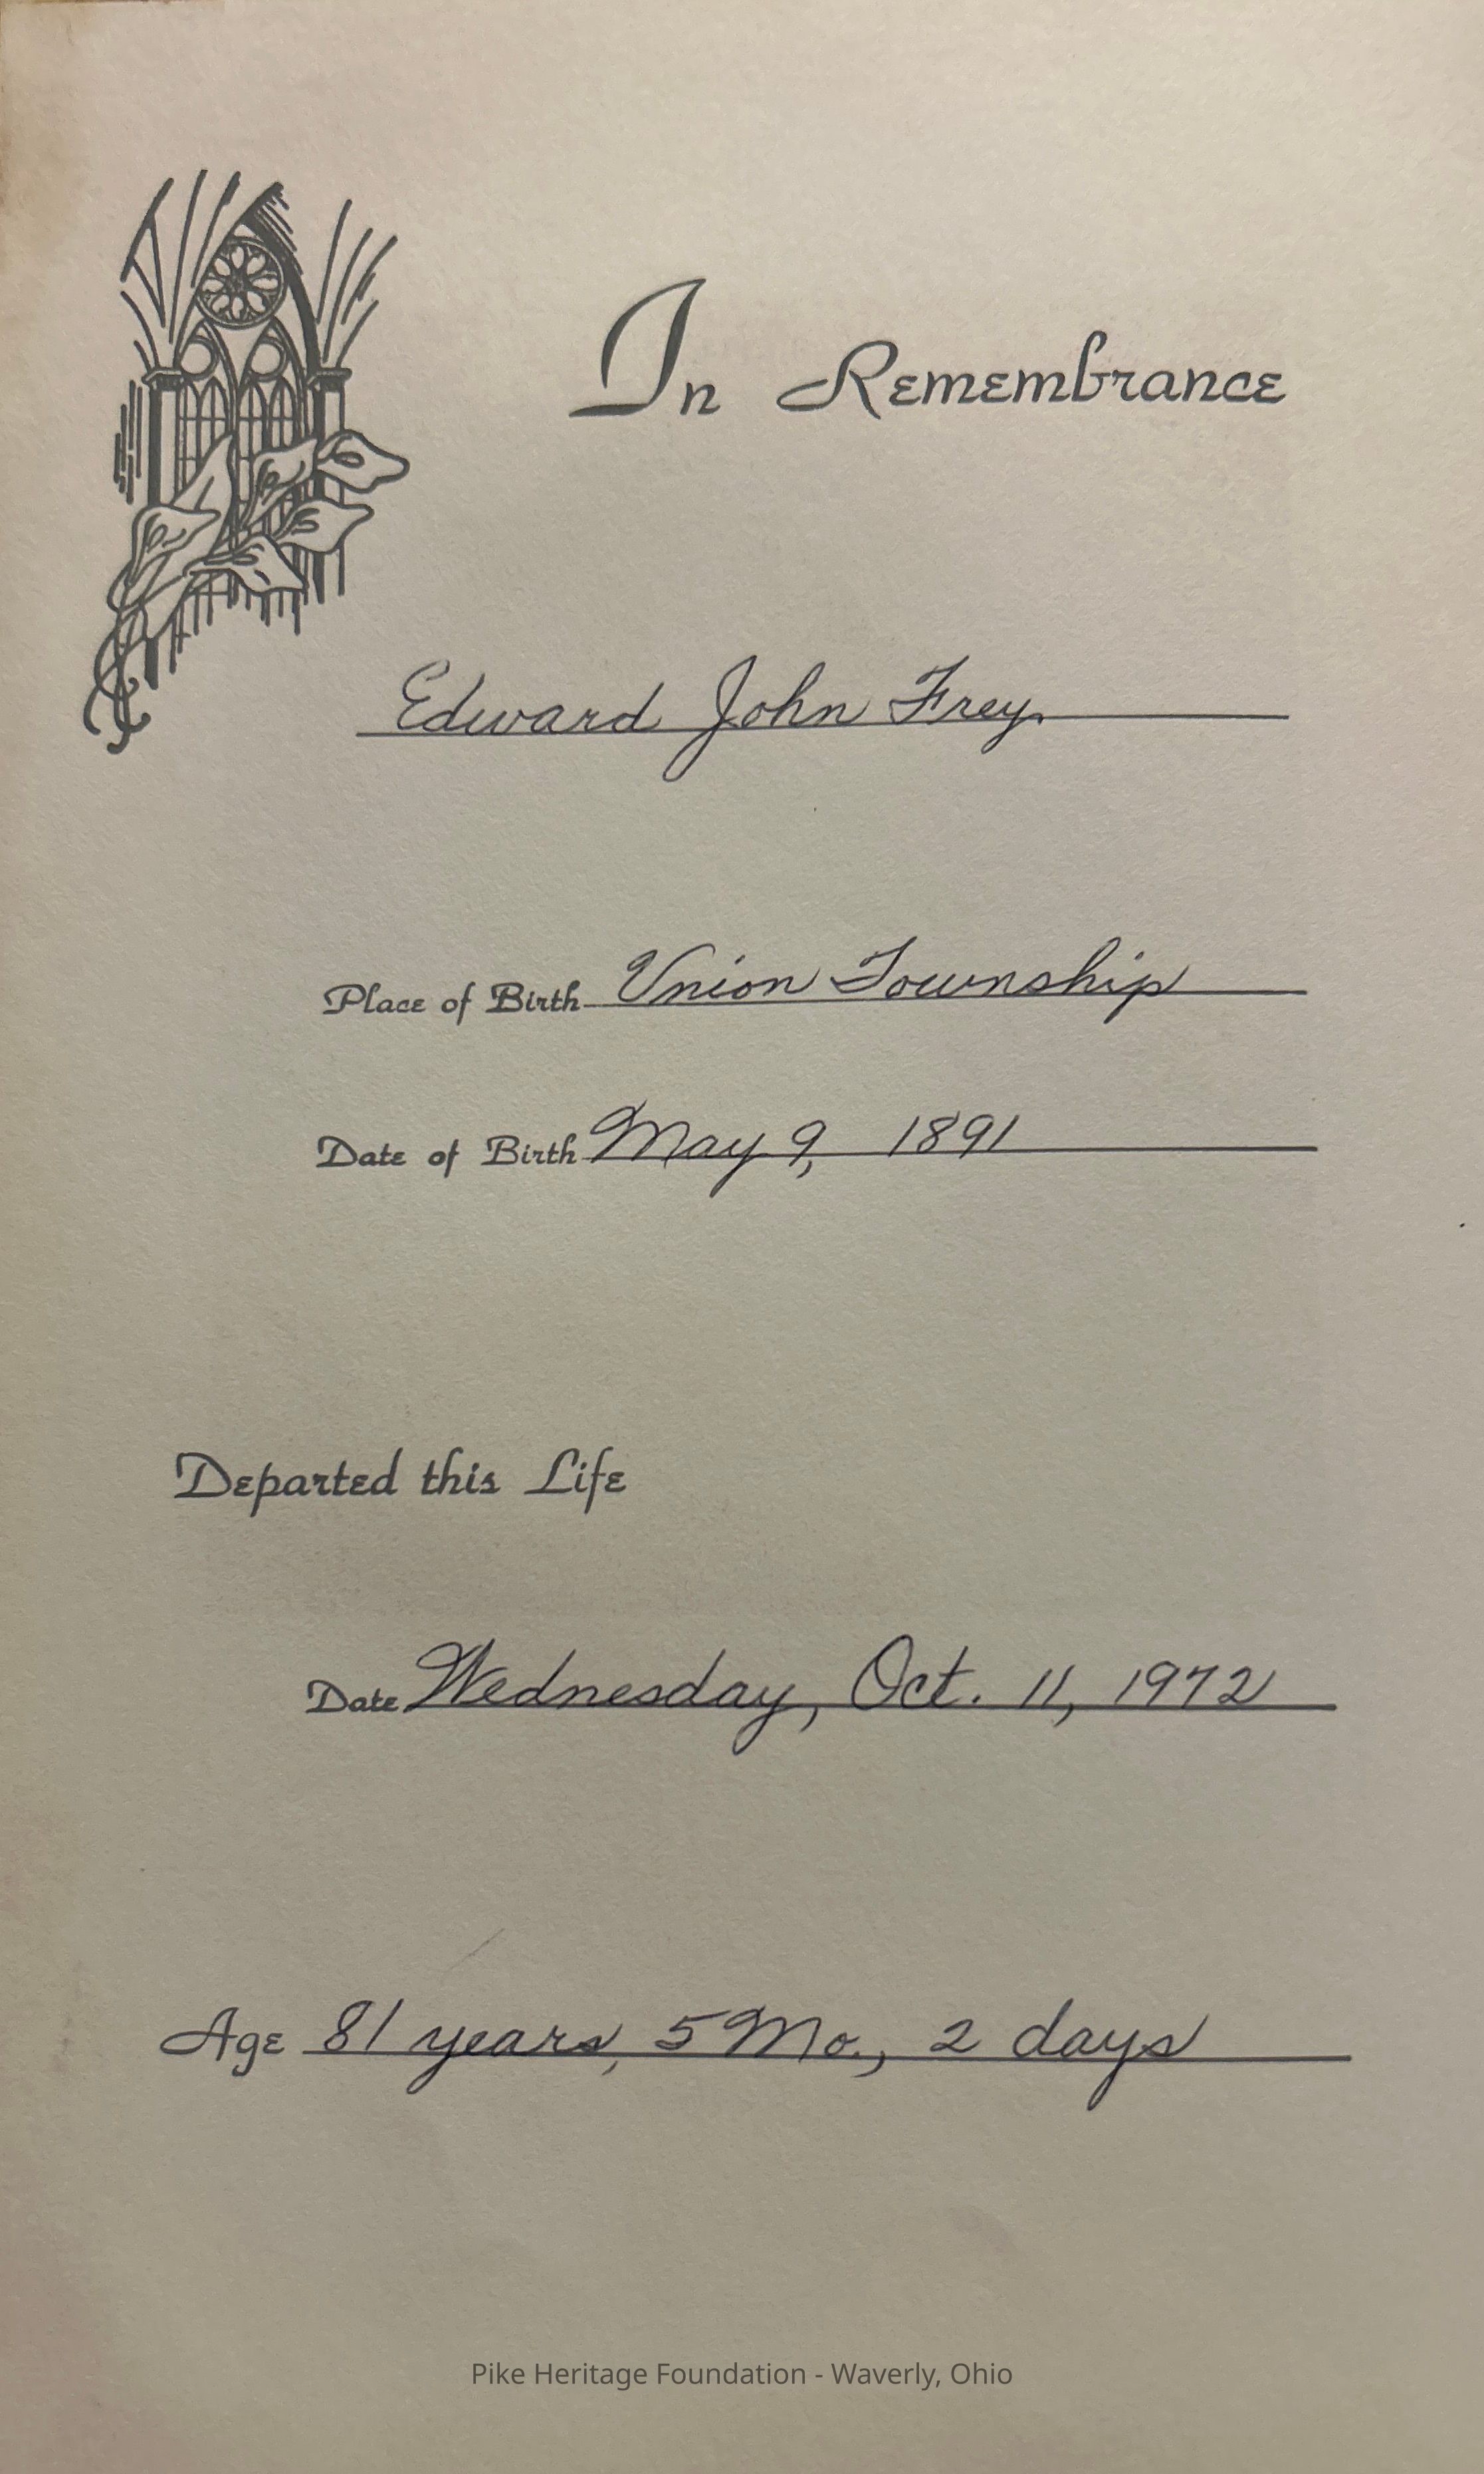 In Remembrance
Edward John Frey
Place of Birth Union Township
Date of Birth May 9, 1891
Departed this Life
Date Wednesday, Oct. 11, 1972
Age 81 years, 5 Mo., 2 days
Pike Heritage Foundation - Waverly, Ohio